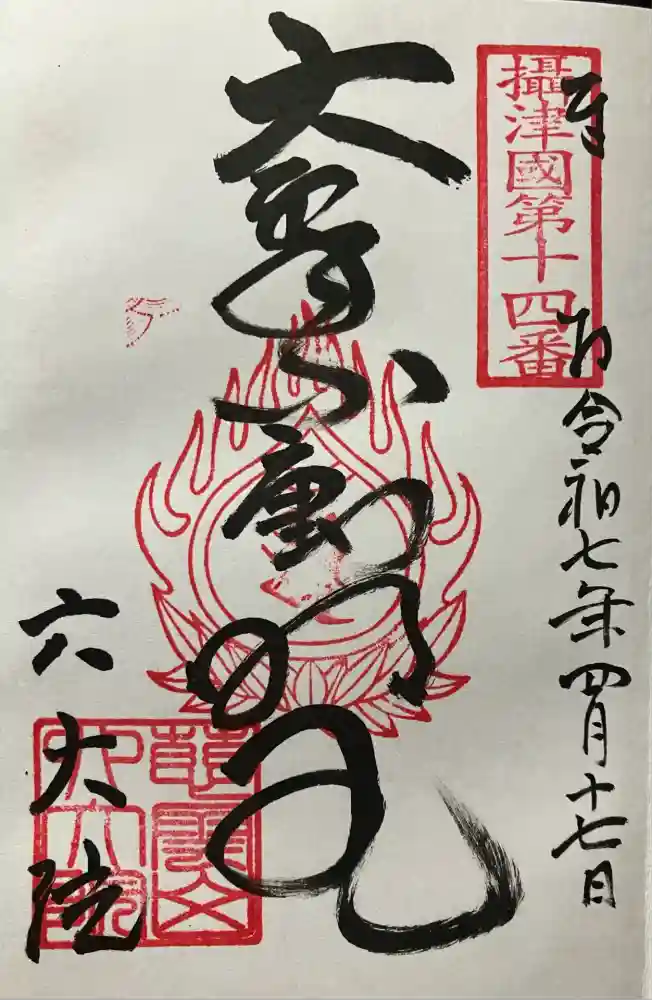 攝津國第十四番
奉拝
令和七年四月十七日
大聖不動明王
六大院